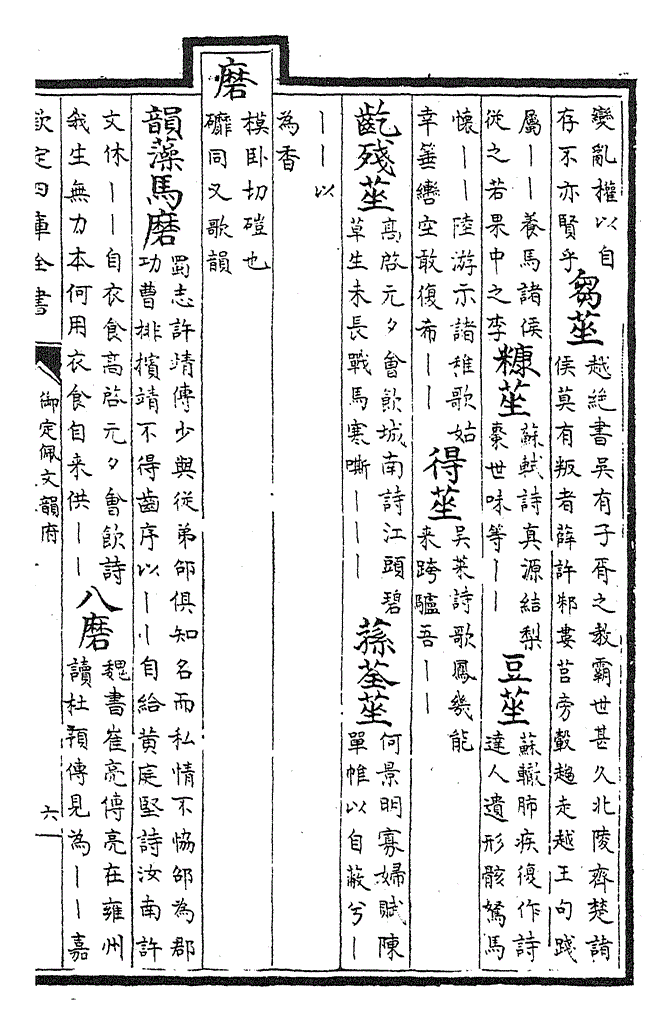 變亂權以自
存不亦賢乎
芻莝
越絶書吳有子胥之教霸世甚久北陵齊楚諸
侯莫有叛者薛許邾婁莒旁轂趨走越王句踐
屬丨丨養馬諸侯
從之若果中之李
糠莝
蘇軾詩真源結梨
棗世味等丨丨
豆莝
蘇轍肺疾復作詩
達人遺形骸駑馬
懷丨丨陸游示諸稚歌姑
幸箠轡空敢復希丨丨
得莝
吳萊詩歌鳳幾能
来跨驢吾丨丨
齕殘莝
高啓元夕會飲城南詩江頭碧
草生未長戰馬寒嘶丨丨丨
蓀荃莝
何景明寡婦賦陳
單帷以自蔽兮丨
丨丨以
為香
磨
模卧切磑也
䃺同又歌韻
韻藻馬磨
蜀志許靖傳少與從弟邵俱知名而私情不恊邵為郡
功曹排擯靖不得齒序以丨丨自給黄庭堅詩汝南許
文休丨丨自衣食高啓元夕會飲詩
我生無力本何用衣食自来供丨丨
八磨
魏書崔亮傳亮在雍州
讀杜預傳見為丨丨嘉
欽定四庫全書
御定佩文韻府
六